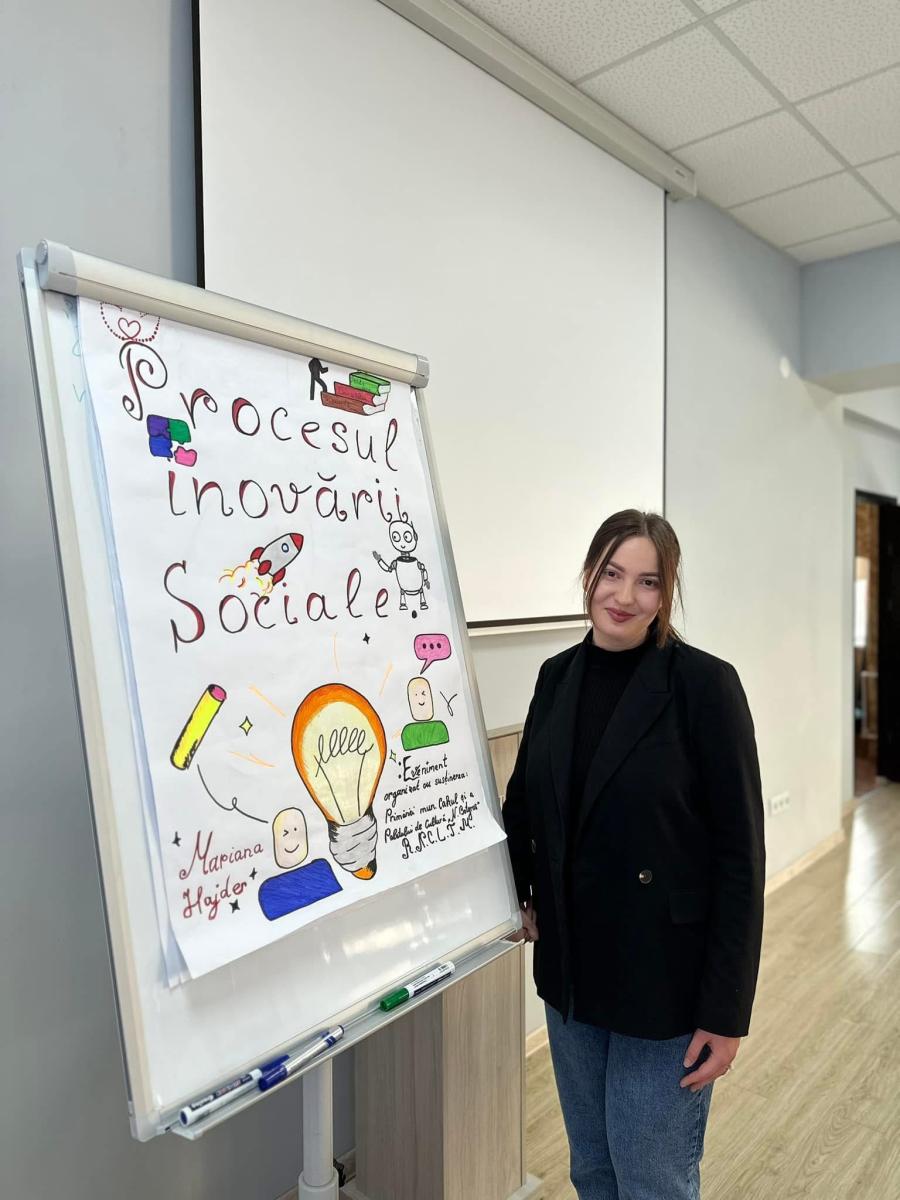 Procesul
inovării
Sociale
Eveniment
organizat cu susținerea:
Primăriei mun. Cahul și a
Palatului de Cultură „N. Botgros”
R.N.C.L.T.M.
Mariana
Hajder